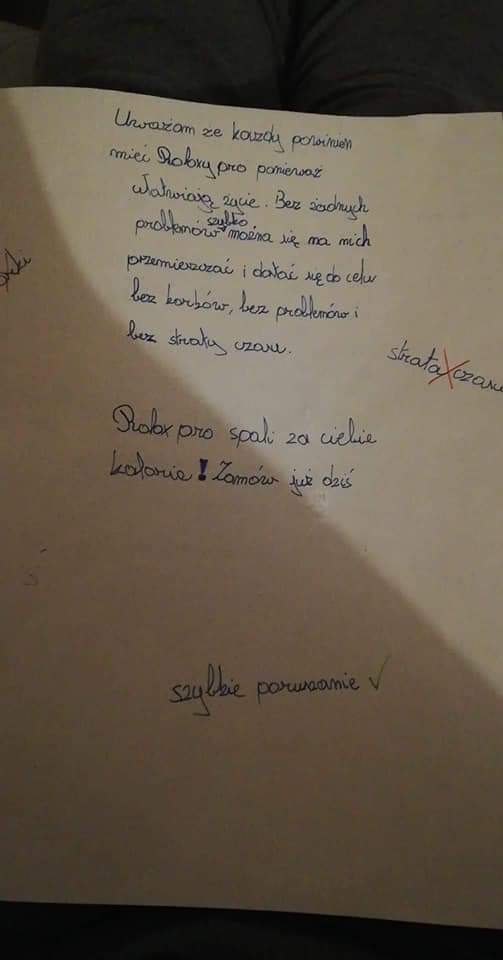 Uważam ze każdy powinien
mieć Roloxy pro ponieważ
ułatwiają życie. Bez żadnych
szybko
problemów można się na nich
przemieszczać i dotać się do celu
bez korków, bez problemów i
bez straty czasu.
strata czasu
Rolox pro spali za ciebie
kalorie! Zamów już dziś
szybkie poruszanie ✓